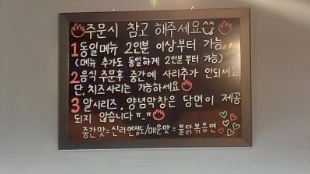 주문시 참고 해주세요
1 동일메뉴 2인분 이상부터 가능
(메뉴 추가도 동일하게 2인분 부터 가능)
2 음식 주문후 중간에 사리추가 안되세요
단, 치즈사리는 가능하세요
3 알시리즈, 양념막창은 당면이 제공
되지 않습니다 ㅠ_ㅠ
중간맛=신라면정도/매운맛=불닭볶음면